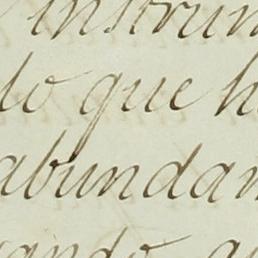 instrum
lo que h
abundan
ando